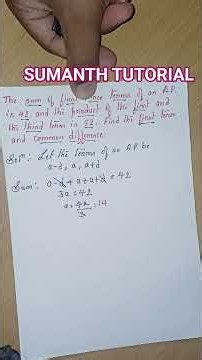 SUMANTH TUTORIAL
The sum of three terms of an A.P.
is 42 and the product of the first and
the third term is 52. Find the first term
and common difference.
Solⁿ: Let the terms of an A.P. be
a-d, a, a+d
Sum: a-d+a+a+d = 42
3a = 42
a = 42/3 = 14